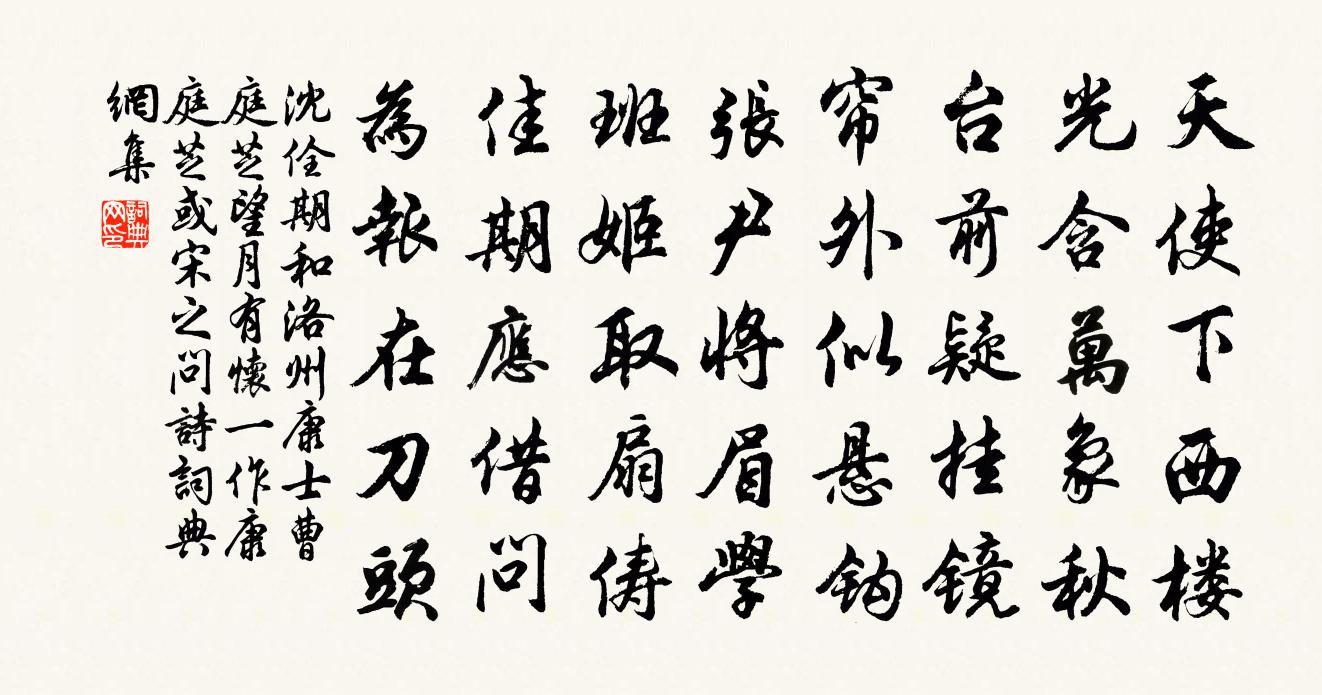 天使下西楼
光含萬象秋
台前疑挂镜
帘外似悬钩
張尹将眉學
班姬取扇俦
佳期應借问
為報在刀頭
沈佺期和洛州康士曹
庭芝望月有懷一作康
庭芝或宋之问詩詞典
網集
詞典
网印